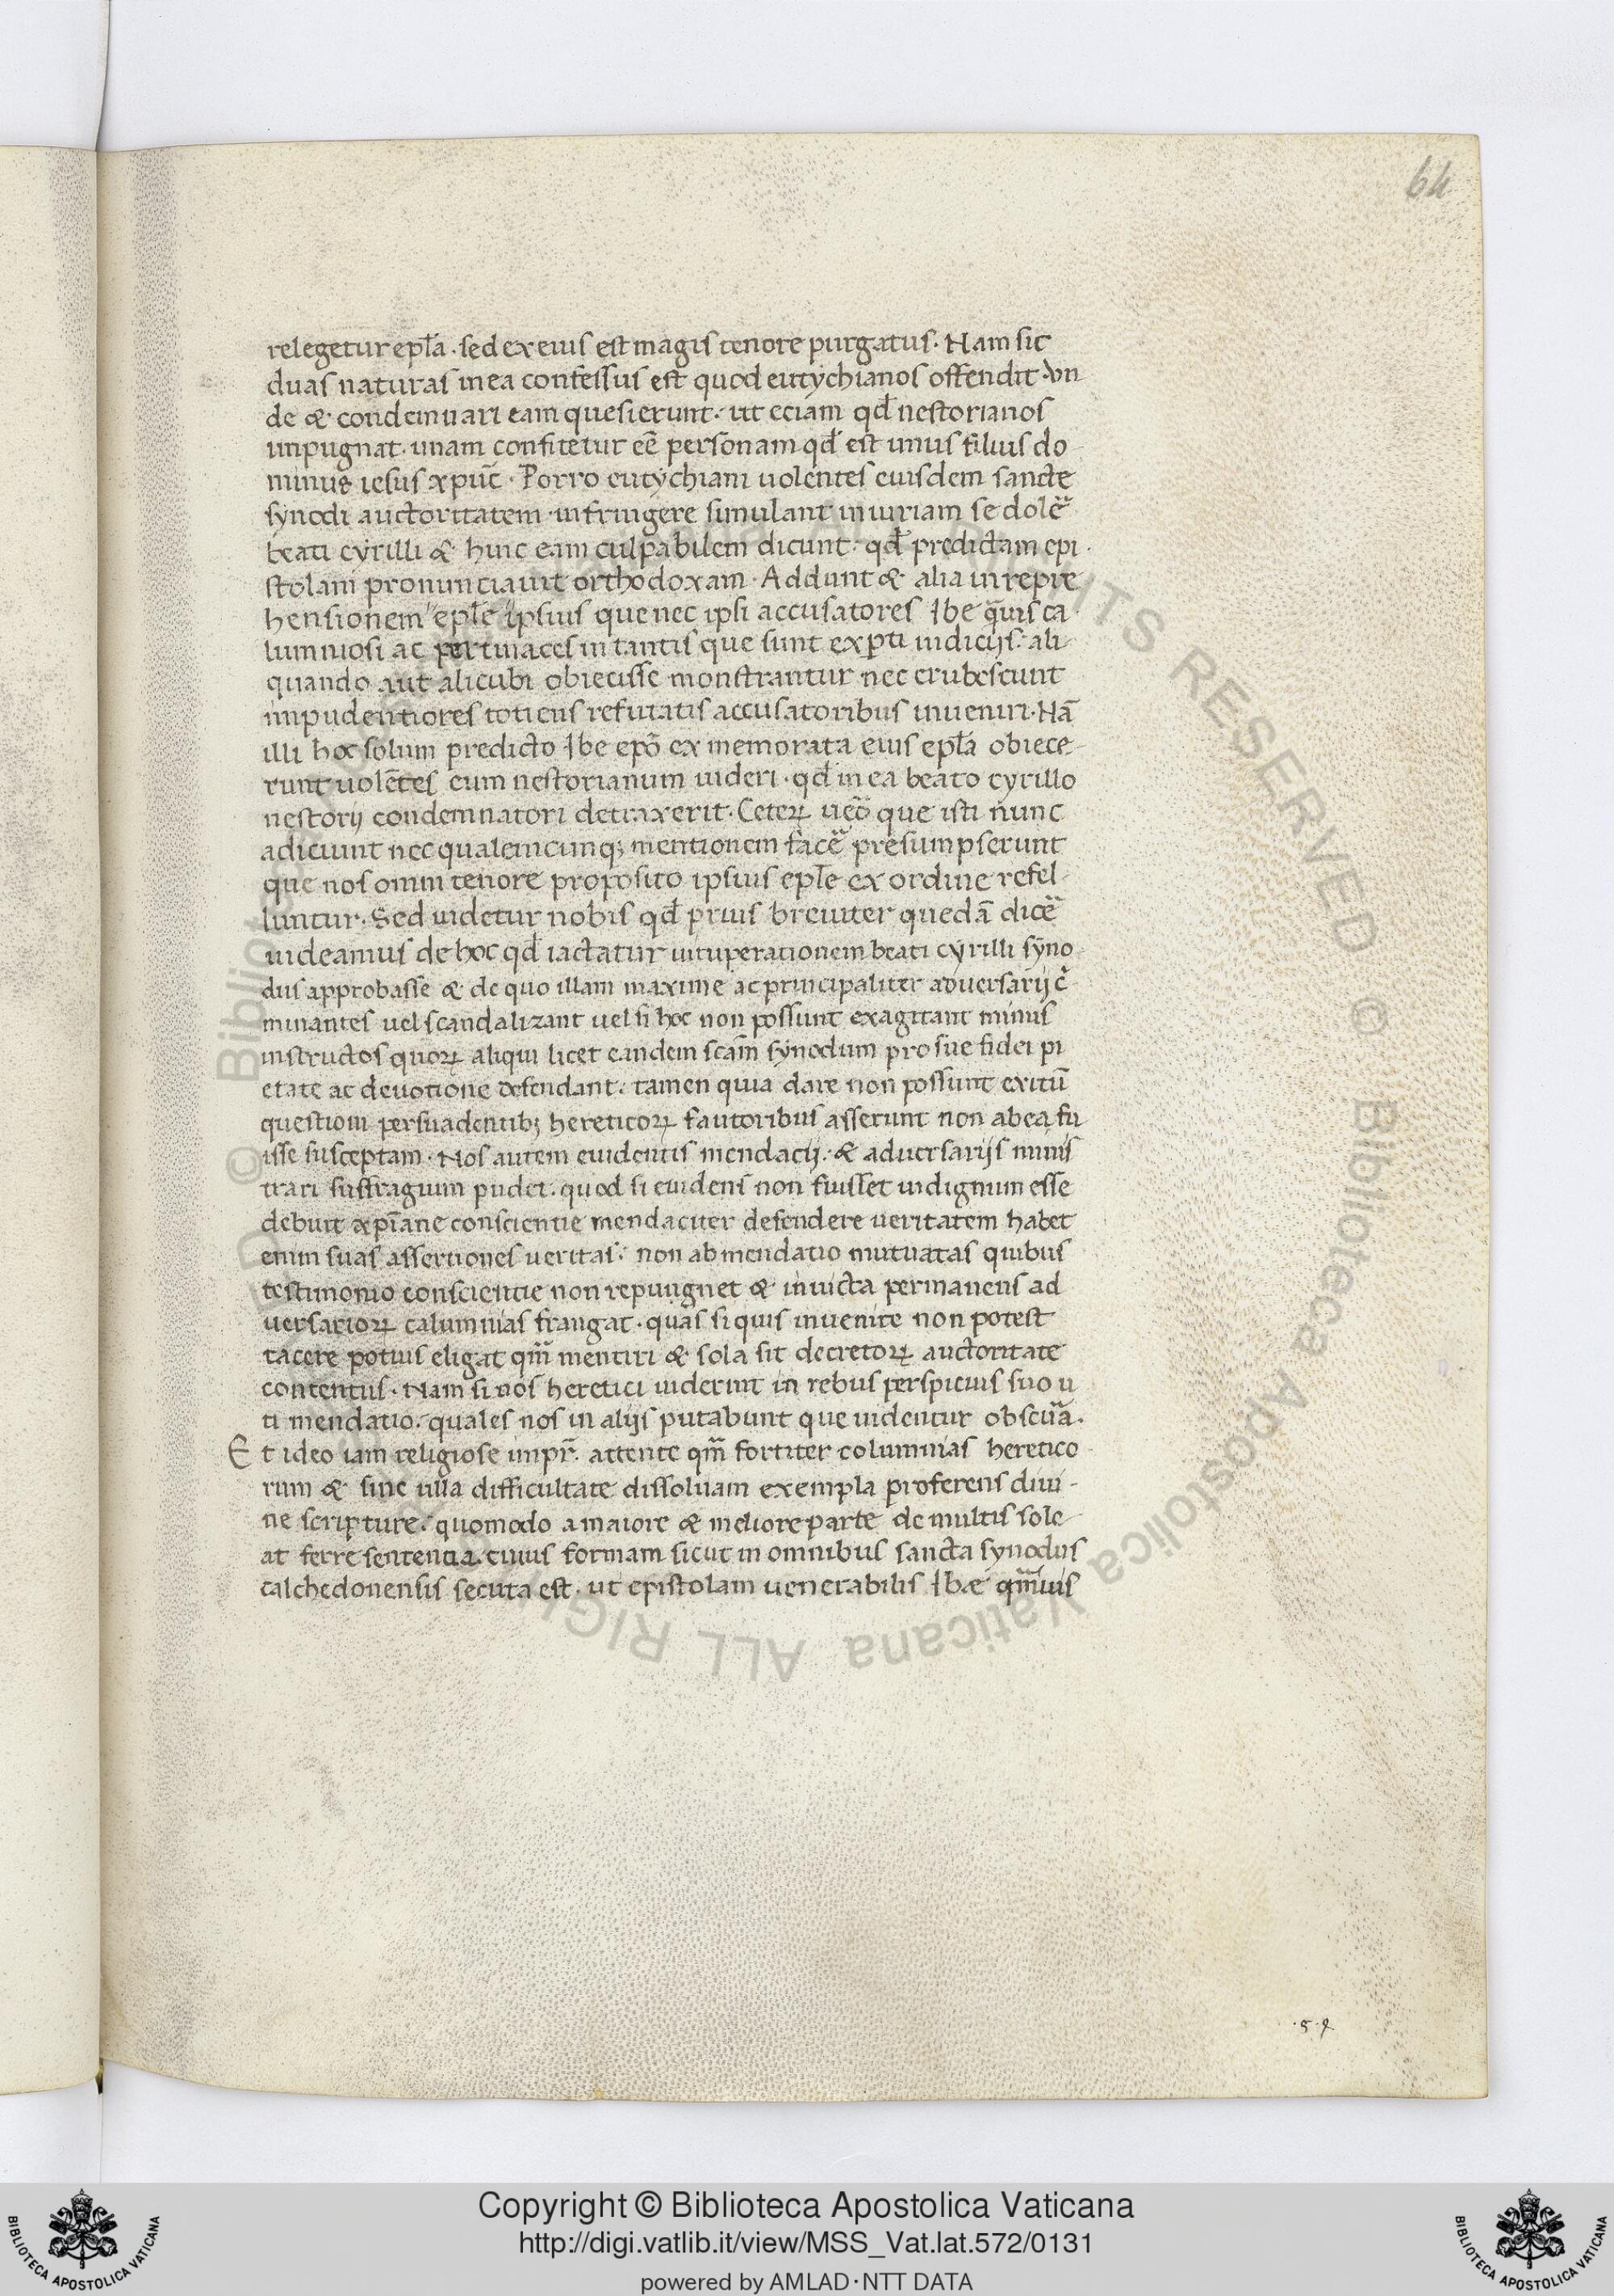 64
relegetur epła · sed ex eius est magis tenore purgatus · Nam sic
duas naturas in ea confessus est quod eutychianos offendit · vn
de & condemnari eam quesierunt · ut eciam qđ nestorianos
impugnat · unam confitetur eē personam qđ est unus filius do
minus iesus xpūc · Porro eutychiani uolentes eiusdem sancte
synodi auctoritatem infringere simulant iniuriam se dolē
beati cyrilli & hinc eam culpabilem dicunt · qđ predictam epi ·
stolam pronunciauit orthodoxam · Addunt & alia in repre
hensionem epłe ipsius que nec ipsi accusatores Ibe q̄uis ca
lumniosi ac pertinaces in tantis que sunt exꝑti iudicijs · ali
quando aut alicubi obiecisse monstrantur nec erubescunt
impudentiores totiens refutatis accusatoribus inueniri · Nā
illi hoc solum predicto Ibe epō ex memorata eius epła obiece
runt uolētes eum nestorianum uideri · qđ in ea beato cyrillo
nestorij condemnatori detraxerit · Ceterꝝ ueō que isti nunc
adiciunt nec qualemcunqꝫ mentionem facē presumpserunt
que nos omni tenore proposito ipsius epłe ex ordine refel
luntur · Sed uidetur nobis qđ prius breuiter quedā dicē
uideamus de hoc qđ iactatur uituperationem beati cyrilli syno
dus approbasse & de quo illam maxime ac principaliter aduersarij c̄
minantes uel scandalizant uel si hoc non possunt exagitant minus
instructos quorꝝ aliqui licet eandem scam̄ synodum pro sue fidei pi
etate ac deuotione defendant · tamen quia dare non possunt exitū
questioni persuadentibꝫ hereticorꝝ fautoribus asserunt non ab ea fu
isse susceptam · Nos autem euidentis mendacij · & aduersarijs minis
trari suffragium pudet · quod si euidens non fuisset indignum esse
debuit xp̄iane conscientie mendaciter defendere ueritatem habet
enim suas assertiones ueritas · non ab mendatio mutuatas quibus
testimonio conscientie non repungnet & inuicta permanens ad
uersariorꝝ calumnias frangat · quas si quis inuenire non potest
tacere potius eligat qm̄ mentiri & sola sit decretorꝝ auctoritate
contentus · Nam si nos heretici uiderint in rebus perspicuis suo u
ti mendatio · quales nos in alijs putabunt que uidentur obscūa ·
Et ideo iam religiose impr̄ · attente qm̄ fortiter columnias heretico
rum & sine ulla difficultate dissoluam exempla proferens diui ·
ne scripture · quomodo a maiore & meliore parte de multis sole
at ferre sententia · cuius formam sicut in omnibus sancta synodus
calchedonensis secuta est · ut epistolam uenerabilis Ibæ qm̄uis
© Biblioteca Apostolica Vaticana ALL RIGHTS RESERVED
Copyright © Biblioteca Apostolica Vaticana
http://digi.vatlib.it/view/MSS_Vat.lat.572/0131
powered by AMLAD·NTT DATA
BIBLIOTECA APOSTOLICA VATICANA
BIBLIOTECA APOSTOLICA VATICANA